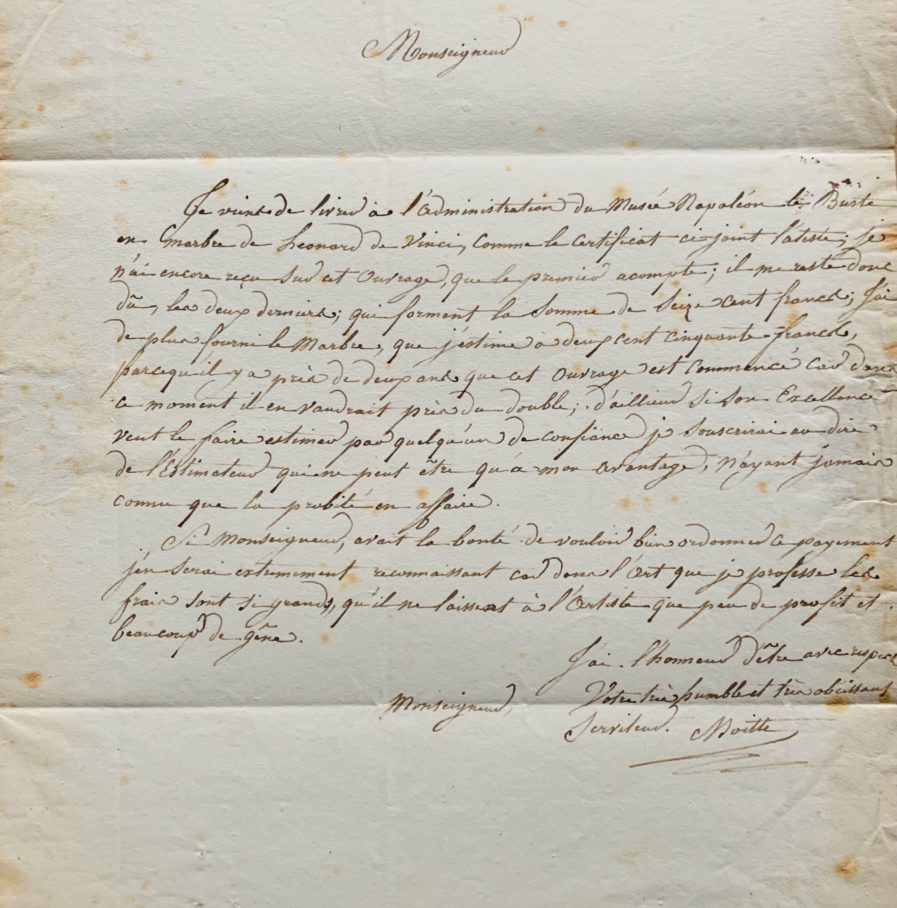 Monseigneur
Je viens de livrer à l'administration du Musée Napoléon le Buste
en marbre de Leonard de Vinci, comme le certificat ci-joint l'ateste; je
n'ai encore reçu sur cet ouvrage, que le premier acompte; il me reste donc
dû, les deux derniers; qui forment la somme de Seize cent francs; J'ai
de plus fourni le Marbre, que j'estime a deux cent cinquante francs,
parcequ'il y a près de deux ans que cet ouvrage est commencé car dans
ce moment il en vaudrait près du double; d'ailleur si son Excellence
veut le faire estimer par quelqu'un de confiance je souscrirai au dire
de l'Estimateur qui ne peut être qu'a mon avantage, n'ayant jamais
connu que la probité en affaire.
Si Monseigneur, avait la bonté de vouloir bien ordonner ce payement
j'en serai extremement reconnaissant car dans l'art que je professe les
frais sont si grands, qu'il ne laissent à l'Artiste que peu de profit et
beaucoup de gêne.
J'ai l'honneur d'être avec respect
Monseigneur, Votre très humble et très obeissant
Serviteur. Moitte